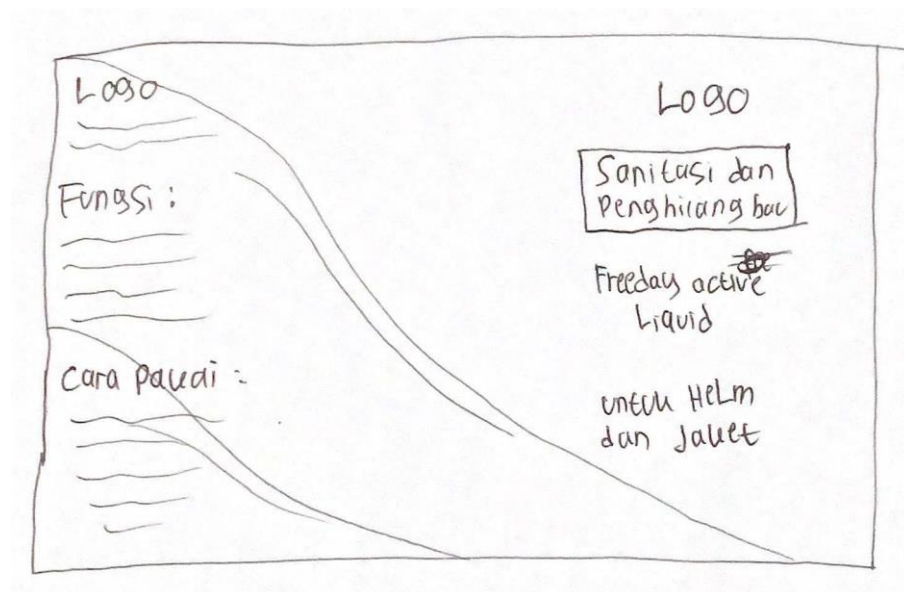 Logo
Fungsi :
Cara Pakai :
Logo
Sanitasi dan
Penghilang bau
Freeday active
Liquid
untuk HeLm
dan Jaket